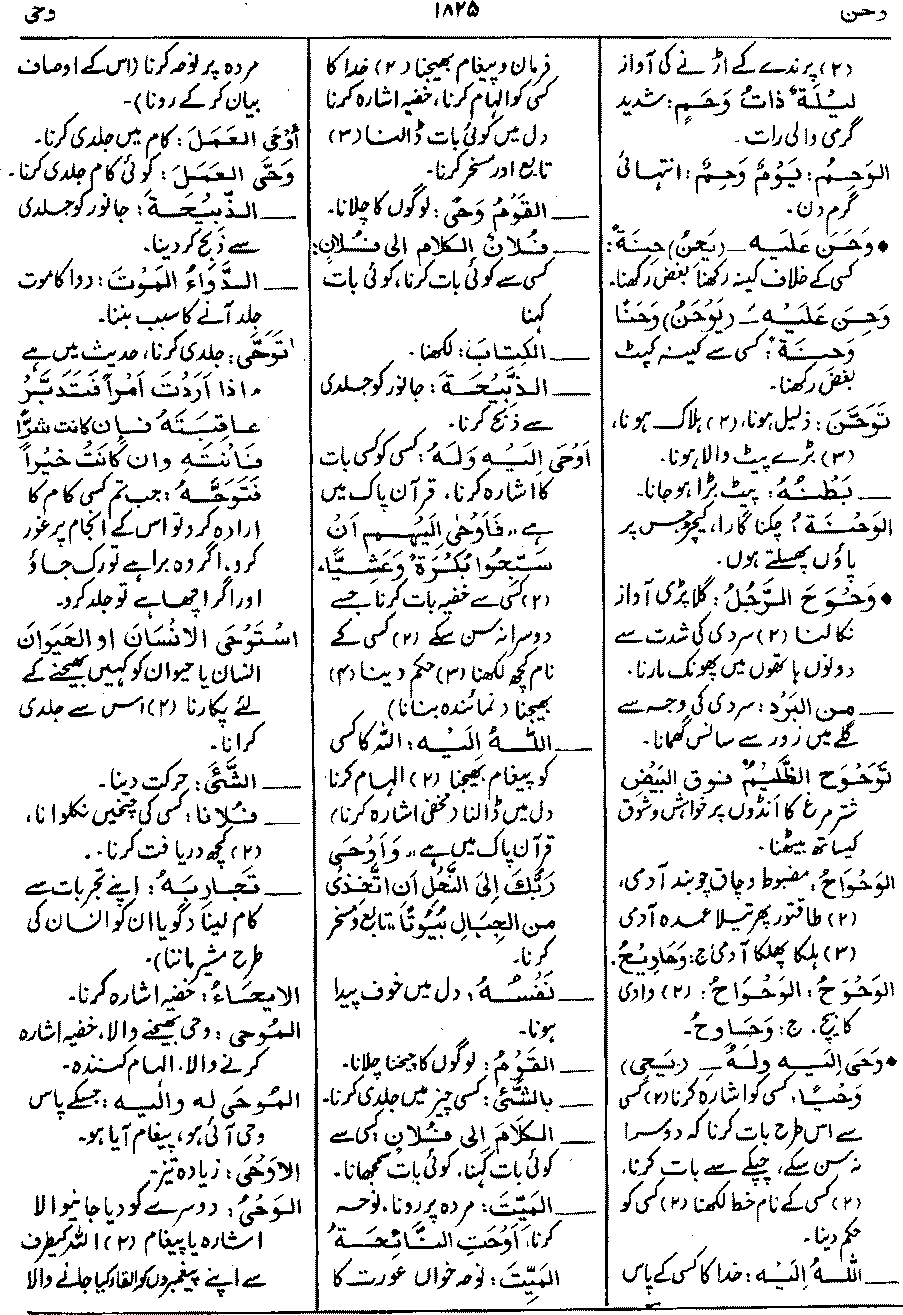 وحن ۱۸۲۵ وحی
(۲) پرندے کے اڑنے کی آواز
لیلَة ذاتُ وَحَمٍ: شدید
گرمی والی رات۔
الوَحِمُ: یَوْمٌ وَحِمٌ: انتہائی
گرم دن۔
• وَحَنَ عَلَیه ــِ (یَحِنُ) حِنَةً:
کسی کے خلاف کینہ رکھنا بغض رکھنا۔
وَحِنَ عَلَیْه ــَ (یَوْحَنُ) وَحَنًا
وَحِنَةً: کسی سے کینہ کپٹ
بغض رکھنا۔
تَوَحَّنَ: ذلیل ہونا، (۲) ہلاک ہونا،
(۳) بڑے پیٹ والا ہونا۔
ــــ بَطْنُهُ: پیٹ بڑا ہو جانا۔
الوَحْنَة: چکنا گارا، کیچڑ جس پر
پاؤں پھسلتے ہوں۔
• وَحْوَحَ الرَّجُلُ: گلا پڑی آواز
نکالنا (۲) سردی کی شدت سے
دونوں ہاتھوں میں پھونک مارنا۔
ــــ من البَرْد: سردی کی وجہ سے
گلے میں زور سے سانس گھمانا۔
تَوَحْوَحَ الظَّلِیْمُ فوق البَیْض
شتر مرغ کا انڈوں پر خواہش و شوق
کیساتھ بیٹھنا۔
الوَحْوَاحُ: مضبوط و چاق چوبند آدمی،
(۲) طاقتور پھرتیلا عمدہ آدمی
(۳) ہلکا پھلکا آدمی ج: وَحَاوِیحُ۔
الوَحْوَحُ: الوَحْوَاحُ: (۲) وادی
کا بیچ۔ ج: وَحَاوِحُ۔
• وَحَی إلَیه ولَهُ ــِ (یَحِی)
وَحْیًا: کسی کو اشارہ کرنا (۲) کسی
سے اس طرح بات کرنا کہ دوسرا
نہ سن سکے، چپکے سے بات کرنا،
(۲) کسی کے نام خط لکھنا (۲) کسی کو
حکم دینا۔
ــــ اللّٰهُ إلَیْه: خدا کا کسی کے پاس
فرمان و پیغام بھیجنا (۲) خدا کا
کسی کو الہام کرنا، خفیہ اشارہ کرنا
دل میں کوئی بات ڈالنا (۳)
تابع اور مسخر کرنا۔
ــــ القَوْمُ وَحًی: لوگوں کا چلانا۔
ــــ فُلانٌ الکلام الی فُلانٍ:
کسی سے کوئی بات کرنا، کوئی بات
کہنا
ــــ الکِتَابَ: لکھنا۔
ــــ الذَّبِیْحَةَ: جانور کو جلدی
سے ذبح کرنا۔
اَوْحَی اِلَیْه وَلَهُ: کسی کو کسی بات
کا اشارہ کرنا، قرآن پاک میں
ہے ،،فَاَوْحٰی اِلَیْهِم اَنْ
سَبِّحُوا بُکْرَةً وَّعَشِیًّا،
(۲) کسی سے خفیہ بات کرنا جسے
دوسرا نہ سن سکے (۲) کسی کے
نام کچھ لکھنا (۳) حکم دینا (۴)
بھیجنا (نمائندہ بنانا)
ــــ اللّٰهُ اِلَیْه: اللہ کا کسی
کو پیغام بھیجنا (۲) الہام کرنا
دل میں ڈالنا (مخفی اشارہ کرنا)
قرآن پاک میں ہے ،،وَاَوْحٰی
رَبُّكَ اِلَی النَّحْلِ اَنِ اتَّخِذِیْ
مِنَ الجِبَالِ بُیُوتًا،، تابع و مسخر
کرنا۔
ــــ نَفْسُهُ: دل میں خوف پیدا
ہونا۔
ــــ القَوْمُ: لوگوں کا چیخنا چلانا۔
ــــ بالشَّیْءِ: کسی چیز میں جلدی کرنا۔
ــــ الکَلَامَ إلی فُلانٍ: کسی سے
کوئی بات کہنا، کوئی بات سمجھانا۔
ــــ المَیِّتَ: مردہ پر رونا، نوحہ
کرنا، اَوْحَتِ النَّائِحَةُ
المَیِّتَ: نوحہ خواں عورت کا
مردہ پر نوحہ کرنا (اس کے اوصاف
بیان کر کے رونا)۔
أَوْحَی العَمَلَ: کام میں جلدی کرنا۔
وَحَّی العَمَلَ: کوئی کام جلدی کرنا۔
ــــ الذَّبِیْحَةَ: جانور کو جلدی
سے ذبح کر دینا۔
ــــ الدَّوَاءُ المَوْتَ: دوا کا موت
جلد آنے کا سبب بننا۔
تَوَحَّی: جلدی کرنا، حدیث میں ہے
،،اذا اَرَدْتَ اَمْراً فَتَدَبَّرْ
عاقِبَتَهُ فَاِن کانت شرًّا
فَانْتَهِ وان کَانَتْ خَیْراً
فَتَوَحَّهْ: جب تم کسی کام کا
ارادہ کرو تو اس کے انجام پر غور
کرو، اگر وہ برا ہے تو رک جاؤ
اور اگر اچھا ہے تو جلد کرو۔
اسْتَوْحَی الانْسَانَ او الحَیَوَانَ
انسان یا حیوان کو کہیں بھیجنے کے
لئے پکارنا (۲) اس سے جلدی
کرانا۔
ــــ الشَّئَ: حرکت دینا۔
ــــ فُلانًا: کسی کی چیخیں نکلوانا،
(۲) کچھ دریافت کرنا۔
ــــ تَجَارِبَهُ: اپنے تجربات سے
کام لینا (گویا ان کو انسان کی
طرح مشیر ماننا)۔
الایحَاءُ: خفیہ اشارہ کرنا۔
المُوحی: وحی بھیجنے والا، خفیہ اشارہ
کرنے والا۔ الہام کنندہ۔
المُوحَی له والَیه: جسکے پاس
وحی آئی ہو، پیغام آیا ہو۔
الاَوْحَی: زیادہ تیز۔
الوَحْیُ: دوسرے کو دیا جانیوالا
اشارہ یا پیغام (۲) اللہ کیطرف
سے اپنے پیغمبروں کو القاء کیا جانے والا